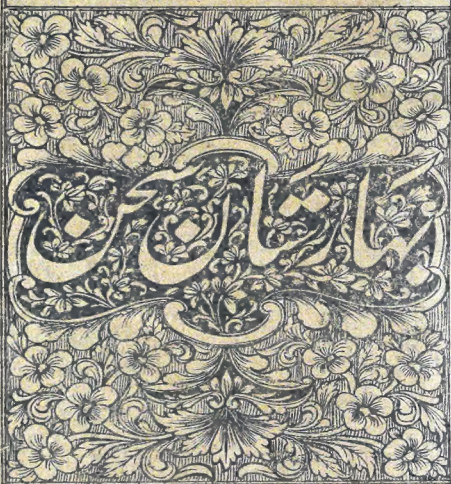 بهارستان سخن